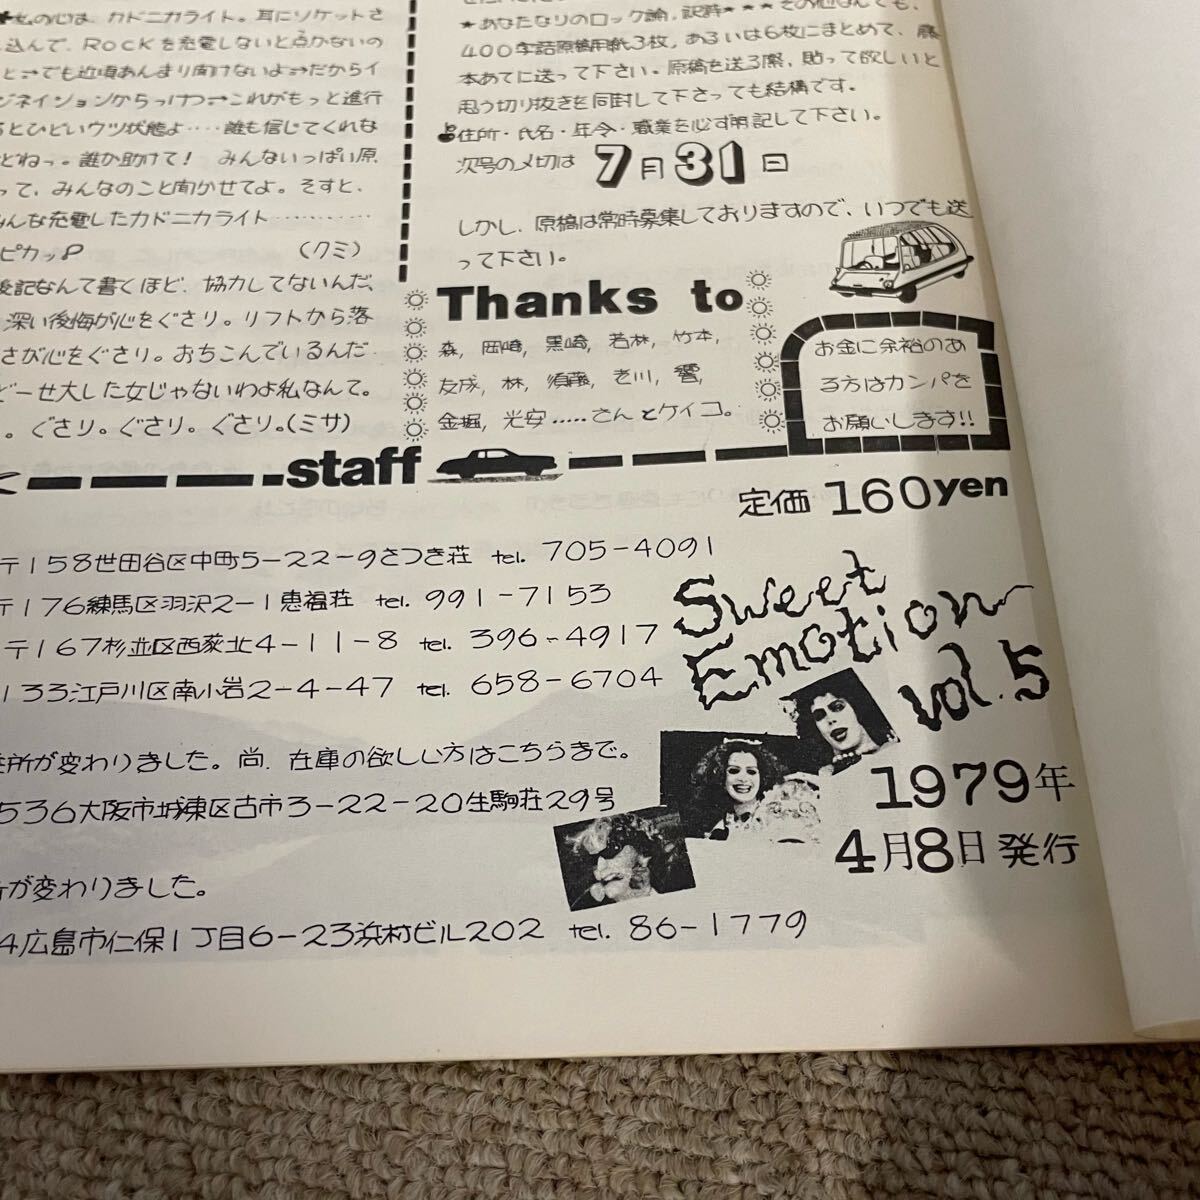 私の心は、カドニカライト。耳にソケットさ
込んで、ROCKを充電しないと点かないの
と→でも近頃あんまり聞けないよ→だからイ
ジネイションからっけつ→これがもっと進行
るとひどいウツ状態よ‥‥誰も信じてくれな
どねっ。誰か助けて! みんないっぱい原
って、みんなのこと聞かせてよ。そすと、
みんな充電したカドニカライト…………
ピカッP (クミ)
後記なんて書くほど、協力してないんだ、
深い後悔が心をぐさり。リフトから落
さが心をぐさり。おちこんでいるんだ
どーせ大した女じゃないわよ私なんて。
。ぐさり。ぐさり。ぐさり。(ミサ)
★あなたなりのロック論,訳詩★★★その他なんでも、
400字詰原稿用紙3枚,あるいは6枚にまとめて、藤
本あてに送って下さい。原稿を送る際、貼って欲しいと
思う切り抜きを同封して下さっても結構です。
住所・氏名・年令・職業を必ず明記して下さい。
次号の〆切は 7月31日
しかし、原稿は常時募集しておりますので、いつでも送
って下さい。
Thanks to
森, 岡崎, 黒崎, 若林, 竹本,
友成, 林, 須藤, 老川, 響,
金堀, 光安.....さんとケイコ。
お金に余裕のあ
る方はカンパを
お願いします!!
staff
定価 160yen
〒158世田谷区中町5-22-9さつき荘 tel. 705-4091
〒176練馬区羽沢2-1恵福荘 tel. 991-7153
〒167杉並区西荻北4-11-8 tel. 396-4917
133江戸川区南小岩2-4-47 tel. 658-6704
住所が変わりました。尚、在庫の欲しい方はこちらまで。
536大阪市城東区古市3-22-20生駒荘29号
所が変わりました。
4広島市仁保1丁目6-23浜村ビル202 tel. 86-1779
Sweet
Emotion
vol.5
1979年
4月8日発行